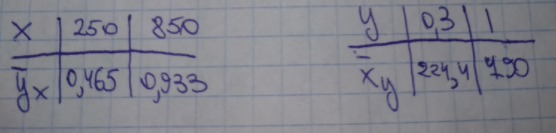 x | 250 | 850
ȳx | 0,465 | 0,933
y | 0,3 | 1
x̄y | 224,4 | 790